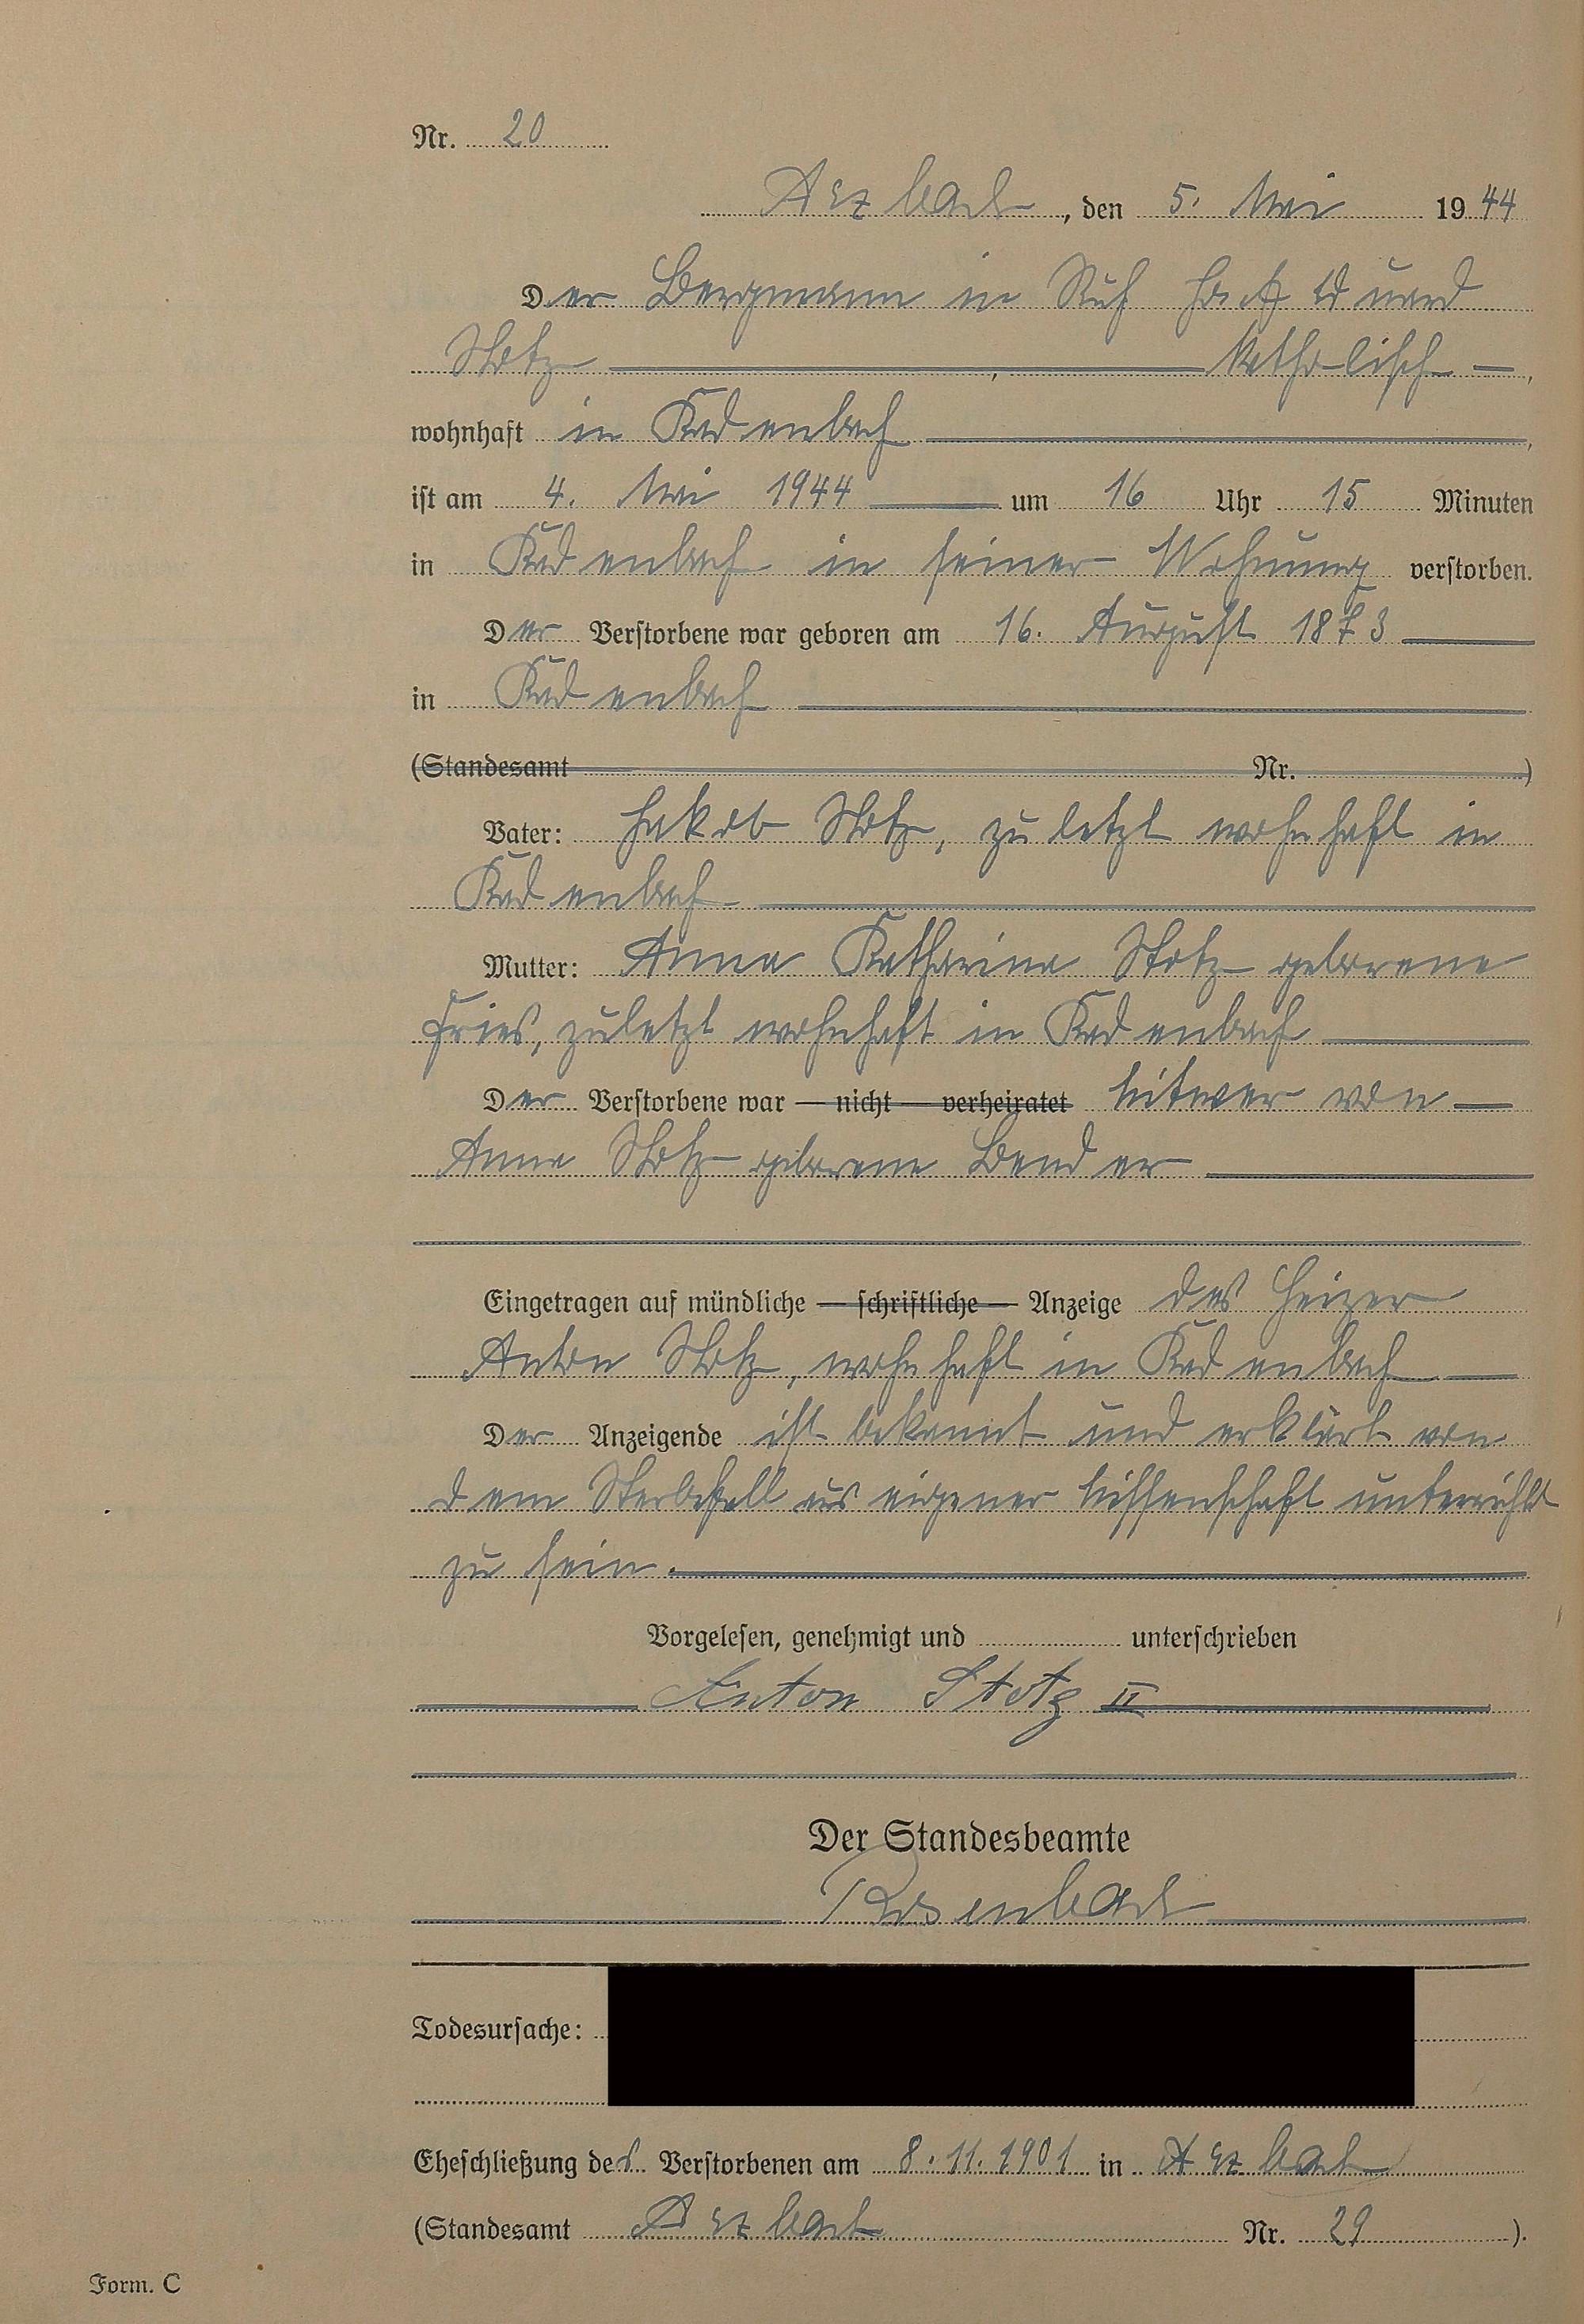 Nr. 20
Arzbach, den 5. Mai 1944
Der Bergmann in Ruh Eduard
Stotz katholisch,
wohnhaft in Kadenbach,
ist am 4. Mai 1944 um 16 Uhr 15 Minuten
in Kadenbach in seiner Wohnung verstorben.
Der Verstorbene war geboren am 16. August 1873
in Kadenbach
(Standesamt Nr. )
Vater: Jakob Stotz, zuletzt wohnhaft in
Kadenbach
Mutter: Anna Katharina Stotz geborene
Fries, zuletzt wohnhaft in Kadenbach
Der Verstorbene war — nicht — verheiratet Witwer von
Anna Stotz geborene Bender
Eingetragen auf mündliche — schriftliche — Anzeige des Heizer
Anton Stotz, wohnhaft in Kadenbach
Der Anzeigende ist bekannt und erklärt von
dem Sterbefall aus eigener Wissenschaft unterrichtet
zu sein.
Vorgelesen, genehmigt und unterschrieben
Anton Stotz II
Der Standesbeamte
Rosenbach
Todesursache:
Eheschließung des Verstorbenen am 8.11.1901 in Arzbach
(Standesamt Arzbach Nr. 29).
Form. C